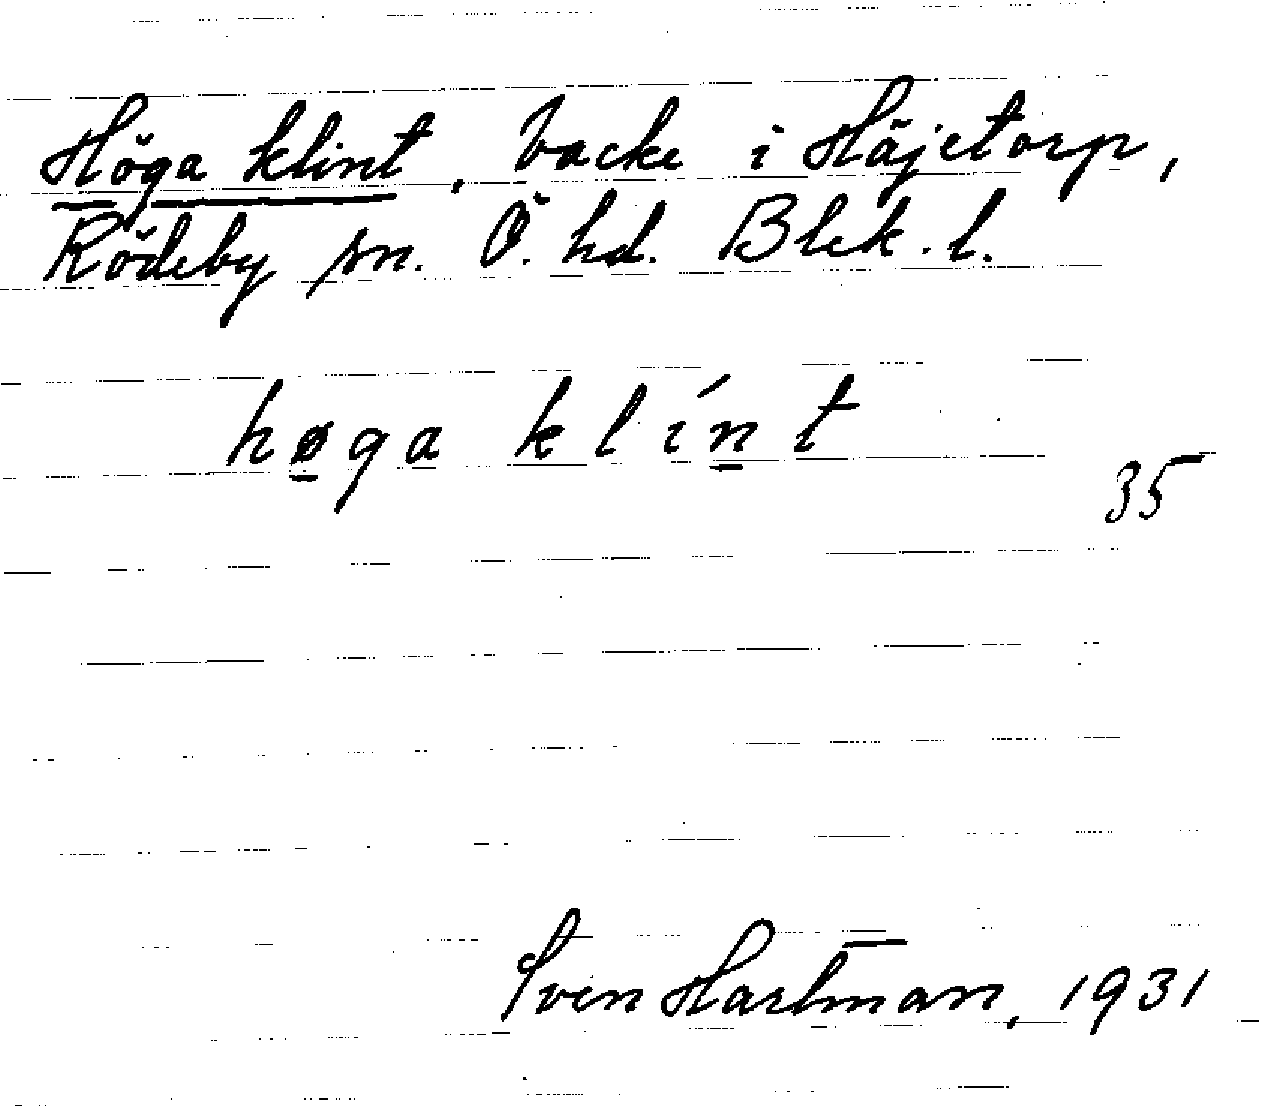 Höga klint, backe i Häjetorp,
Rödeby sn. Ö. hd. Blek. l.
høga klínt
35
Sven Hartman, 1931